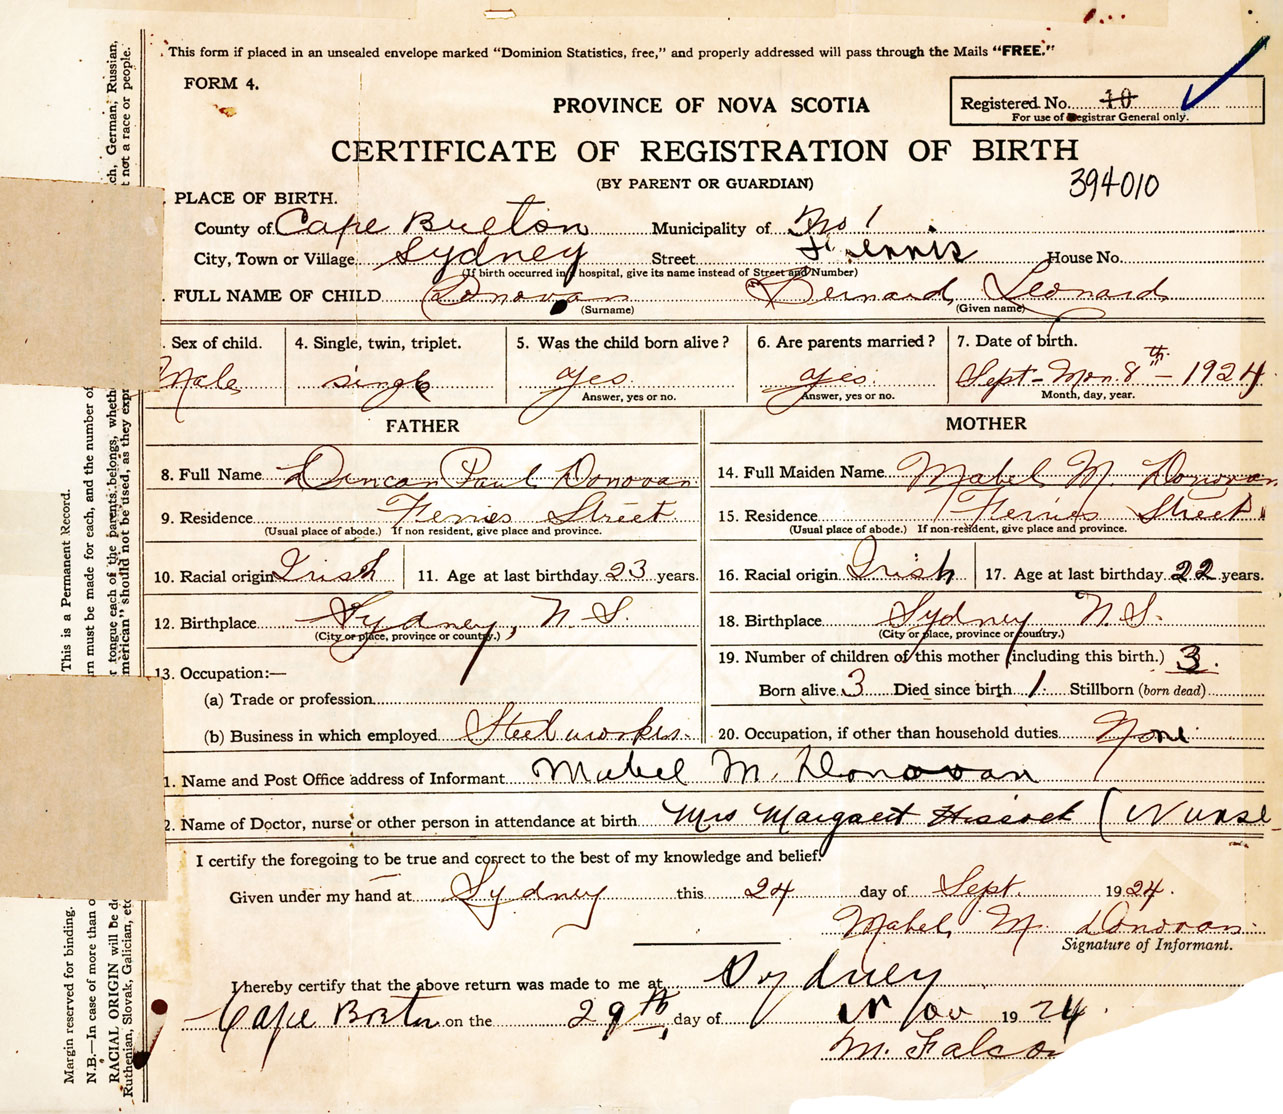 This form if placed in an unsealed envelope marked "Dominion Statistics, free," and properly addressed will pass through the Mails "FREE."
FORM 4.
PROVINCE OF NOVA SCOTIA
Registered No. 10
For use of Registrar General only.
CERTIFICATE OF REGISTRATION OF BIRTH
(BY PARENT OR GUARDIAN)
394010
PLACE OF BIRTH.
County of Cape Breton Municipality of No 1
City, Town or Village Sydney Street House No.
(If birth occurred in hospital, give its name instead of Street and Number)
FULL NAME OF CHILD Donovan Bernard Leonard
(Surname) (Given name)
Sex of child. 4. Single, twin, triplet. 5. Was the child born alive? 6. Are parents married? 7. Date of birth.
Male single yes yes Sept - Mon. 8th - 1924
Answer, yes or no. Answer, yes or no. Month, day, year.
FATHER MOTHER
8. Full Name Duncan Paul Donovan 14. Full Maiden Name Mabel M. Donovan
9. Residence Ferries Street 15. Residence Ferries Street
(Usual place of abode.) If non resident, give place and province. (Usual place of abode.) If non-resident, give place and province.
10. Racial origin Irish 11. Age at last birthday 23 years. 16. Racial origin Irish 17. Age at last birthday 22 years.
12. Birthplace Sydney, N.S. 18. Birthplace Sydney N.S.
(City or place, province or country.) (City or place, province or country.)
13. Occupation:— 19. Number of children of this mother (including this birth.) 3.
(a) Trade or profession Born alive 3 Died since birth 1. Stillborn (born dead)
(b) Business in which employed Steel works. 20. Occupation, if other than household duties None
1. Name and Post Office address of Informant Mabel M. Donovan
2. Name of Doctor, nurse or other person in attendance at birth Mrs Margaret (Nurse
I certify the foregoing to be true and correct to the best of my knowledge and belief.
Given under my hand at Sydney this 24 day of Sept. 1924.
Mabel M. Donovan
Signature of Informant.
I hereby certify that the above return was made to me at Sydney
Cape Breton on the 29th day of Nov 1924
M. Falco
Margin reserved for binding. This is a Permanent Record.
N.B.—In case of more than o rn must be made for each, and the number of
RACIAL ORIGIN will be de r tongue each of the parents belongs, wheth ch, German, Russian,
Ruthenian, Slovak, Galician, etc merican" should not be used, as they expr t not a race or people.